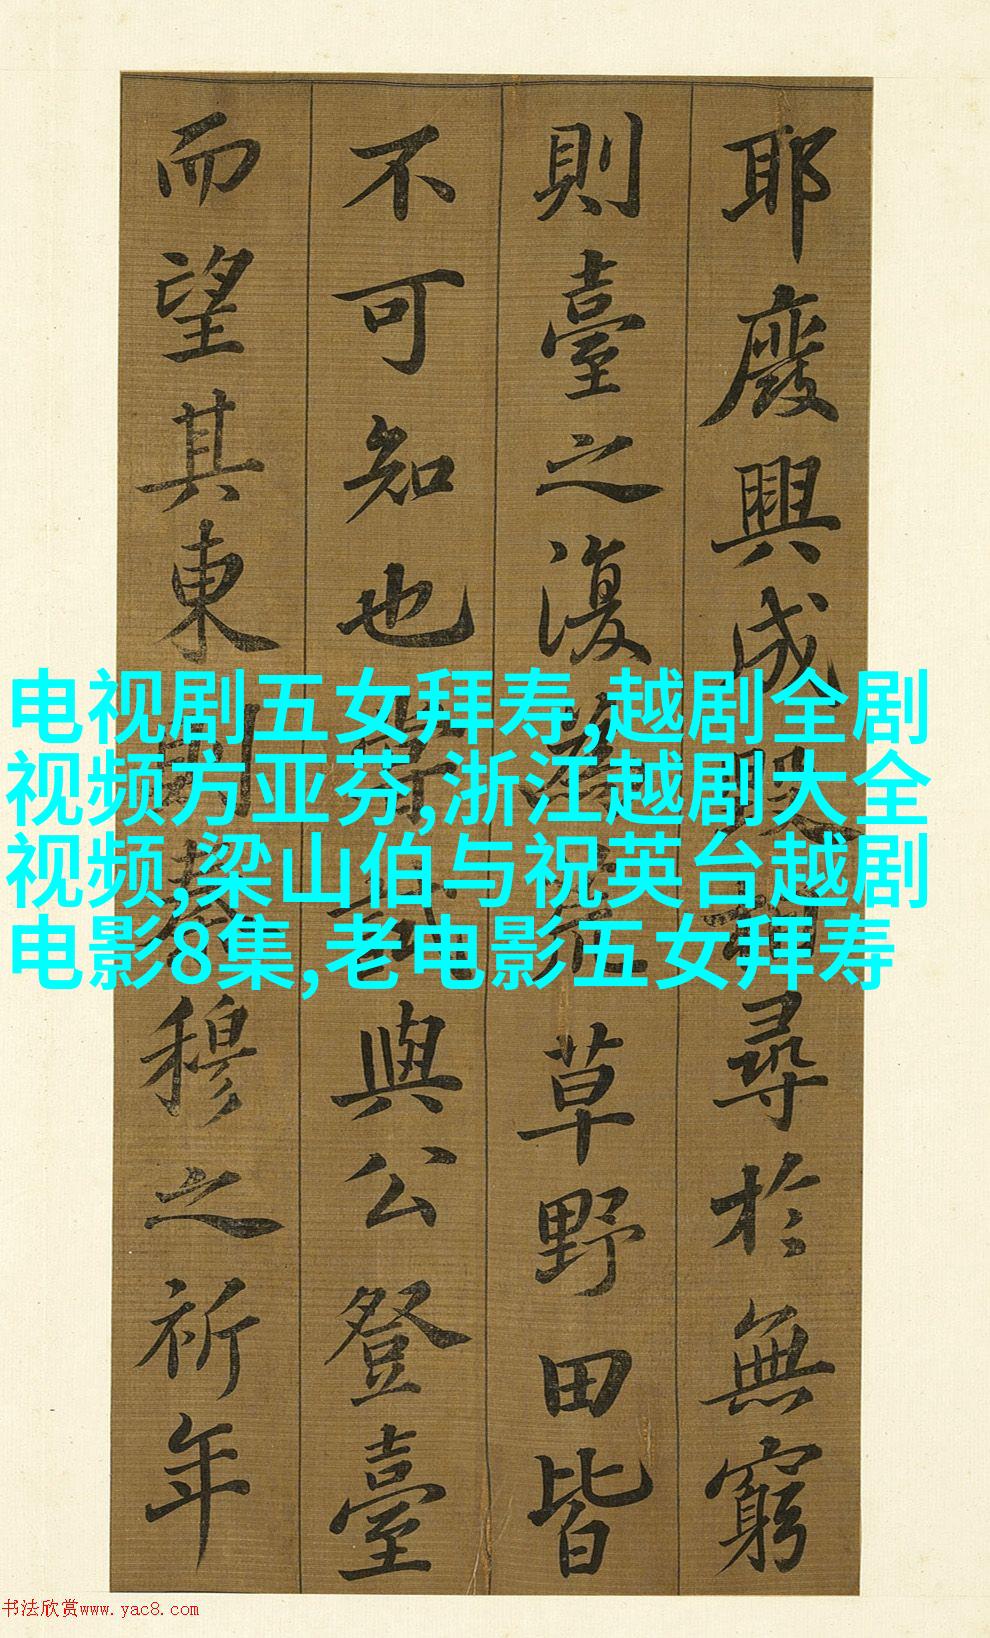 耶廢興成毀相尋於無窮
則臺之復為荒草野田皆
不可知也嘗試與公登臺
而望其東則秦穆之祈年
电视剧五女拜寿,越剧全剧
视频方亚芬,浙江越剧大全
视频,梁山伯与祝英台越剧
电影8集,老电影五女拜寿
书法欣赏www.yac8.com